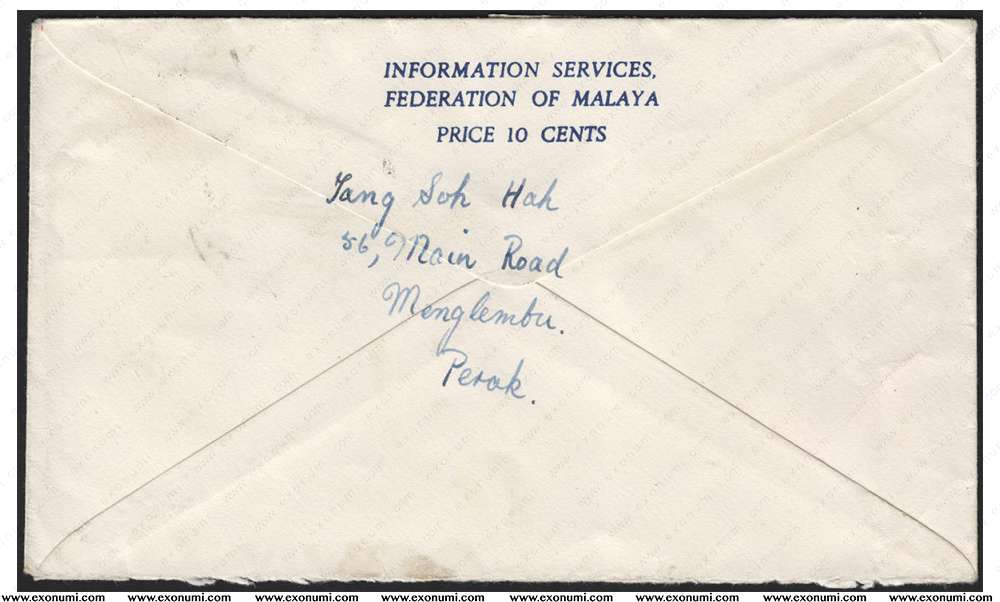 INFORMATION SERVICES,
FEDERATION OF MALAYA
PRICE 10 CENTS
Tang Soh Hah
56, Main Road
Menglembu.
Perak.
www.exonumi.com www.exonumi.com www.exonumi.com www.exonumi.com www.exonumi.com www.exonumi.com www.exonumi.com www.exonumi.com